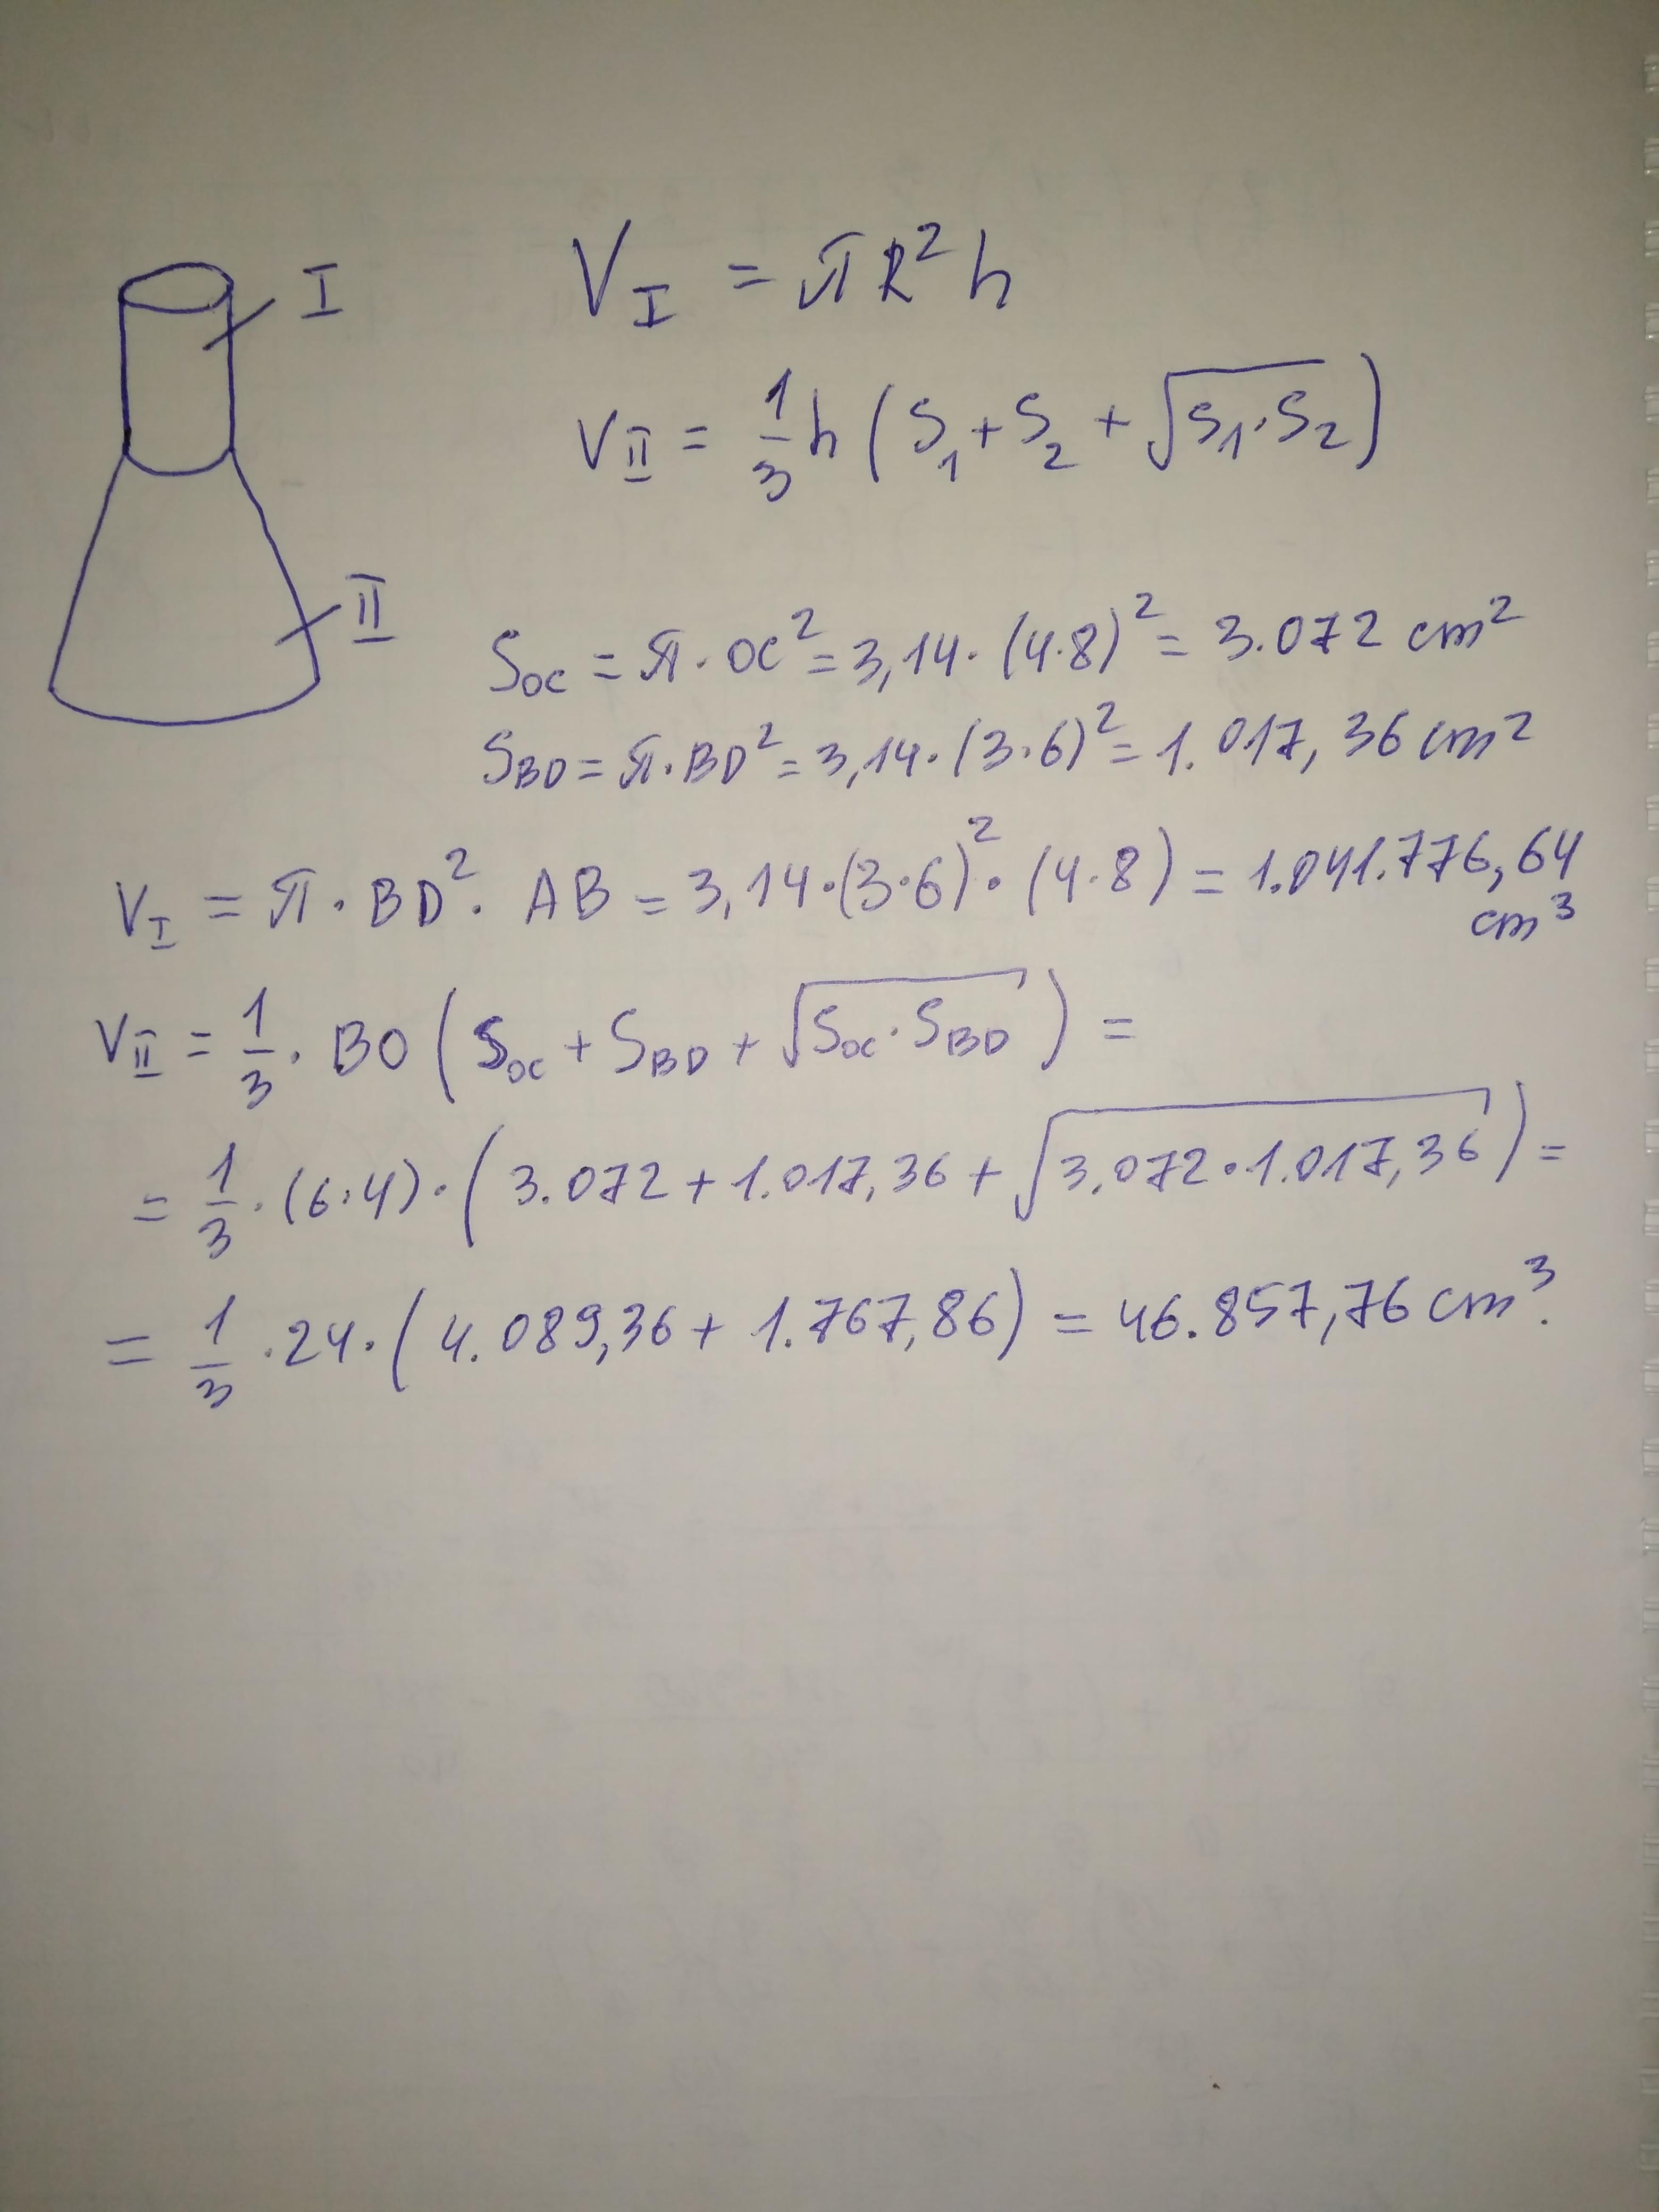 I
V_I = πR²h
V_II = 1/3 h (S₁ + S₂ + √(S₁·S₂))
II
S_OC = π · OC² = 3,14 · (4·8)² = 3.072 cm²
S_BD = π · BD² = 3,14 · (3·6)² = 1.017,36 cm²
V_I = π · BD² · AB = 3,14 · (3·6)² · (4·8) = 1.041.776,64 cm³
V_II = 1/3 · BO (S_OC + S_BD + √(S_OC · S_BD)) =
= 1/3 · (6·4) · (3.072 + 1.017,36 + √(3.072 · 1.017,36)) =
= 1/3 · 24 · (4.089,36 + 1.767,86) = 46.857,76 cm³.